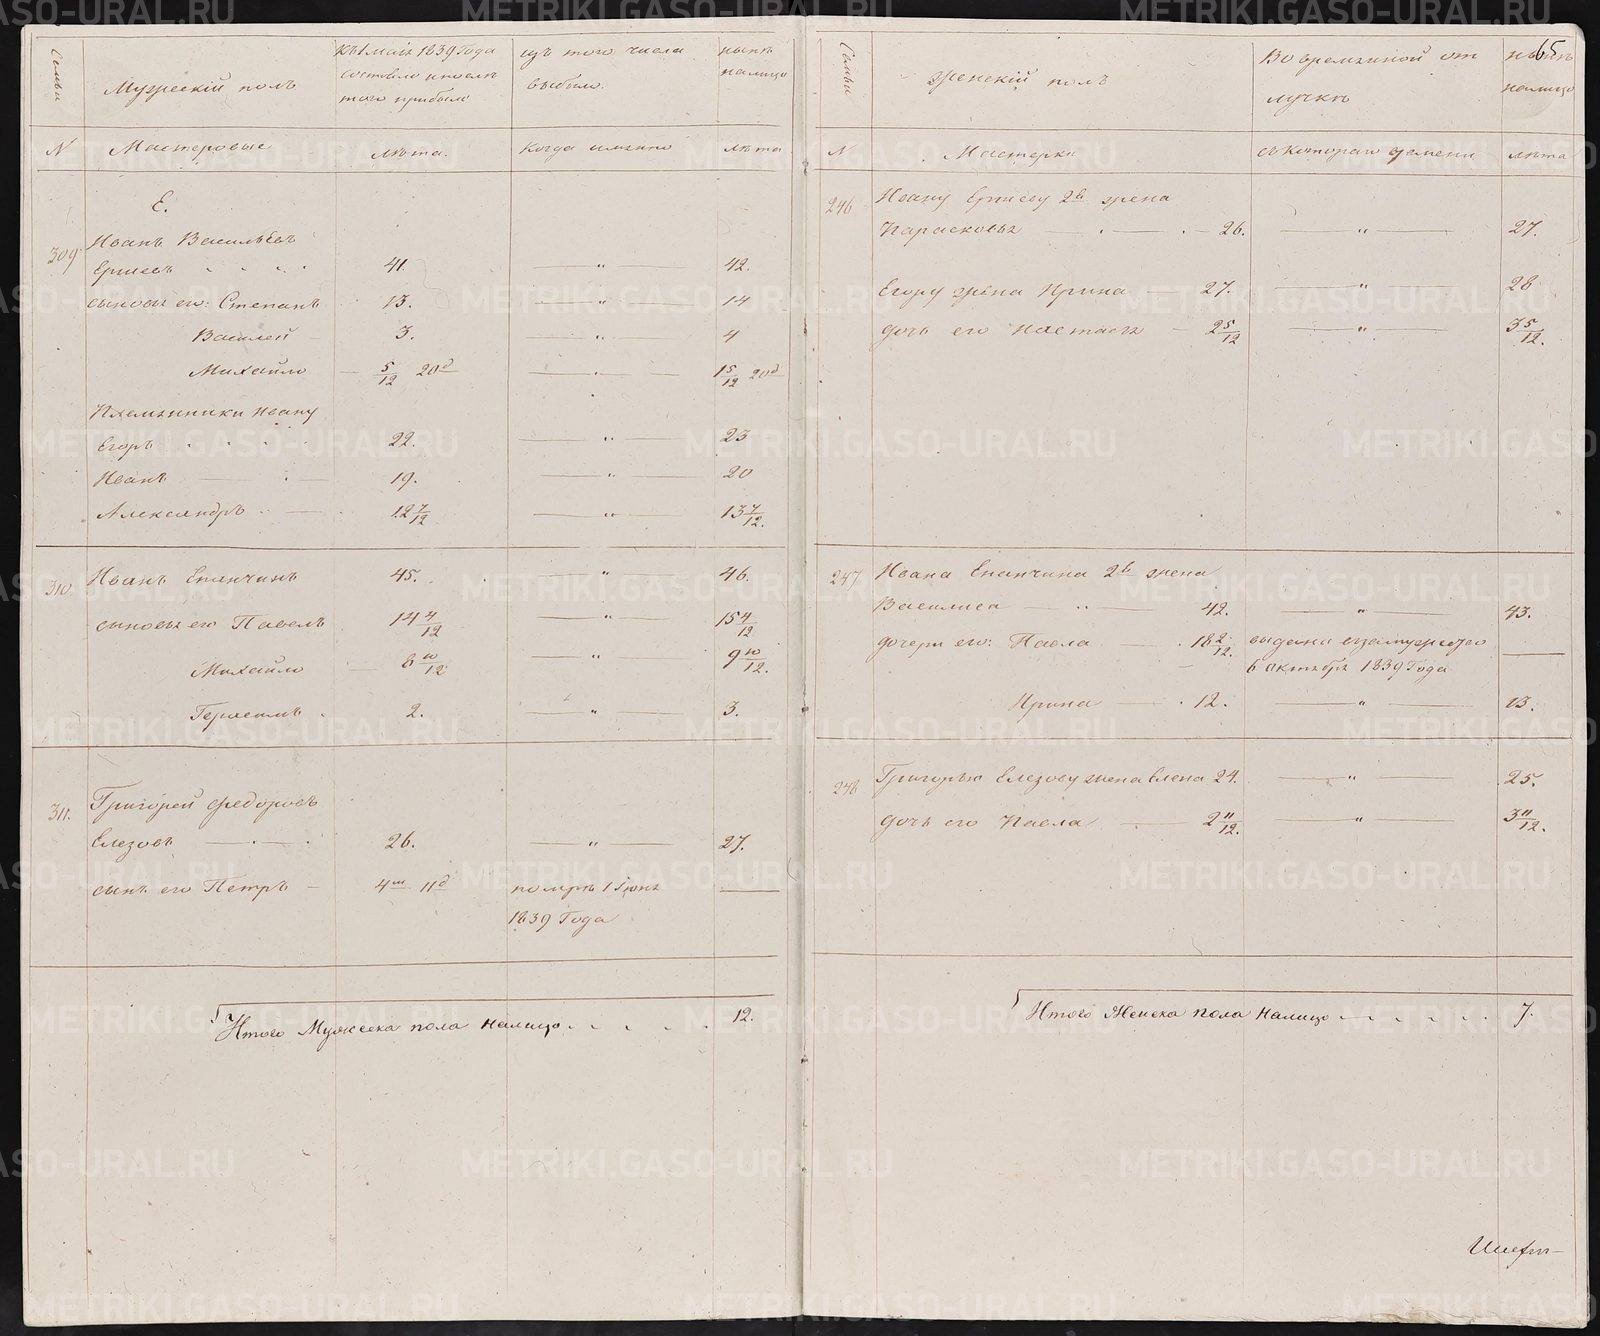 Семьи
Мужескій полъ
Къ 1 маія 1839 Года
состояло и после
того прибыло
изъ того числа
выбыло.
ныне
налицо
N
Мастеровые
лѣта.
Когда имянно
лѣта
Е.
309
Иванъ Васильевъ
Ершевъ 41. " 42.
сыновья его: Степанъ 13. " 14
Василей 3. " 4
Михайло 5/12 20д " 15/12 20д
Племянники Ивану
Егоръ 22. " 23
Иванъ 19. " 20
Александръ 12 7/12 " 13 7/12.
310 Иванъ Епанчинъ 45. " 46.
сыновья его Павелъ 14 4/12 " 15 4/12
Михайло 8 10/12 " 9 10/12.
Герасимъ 2. " 3.
311. Григорей Федоровъ
Елезовъ 26. " 27.
сынъ его Петръ 4м 11д помре 1 Іюня
1839 Года
Итого Мужеска пола налицо 12.
65
Семьи
Женскій полъ
Во времянной от
лучке
ныне
налицо
N
Мастерки
съ Котораго времени
лѣта
246 Ивану Ершеву 2я жена
Парасковья 26. " 27.
Егору жена Ирина 27. " 28
дочь его Настасья 2 5/12 " 3 5/12.
247 Ивана Епанчина 2я жена
Василиса 42. " 43.
дочери его: Павла 18 2/12. выдана взамужество
6 октября 1839 Года
Ирина 12. " 13.
248 Григорью Елезову жена Елена 24. " 25.
дочь его Павла 2 11/12. " 3 11/12.
Итого Женска пола налицо 7.
METRIKI.GASO-URAL.RU